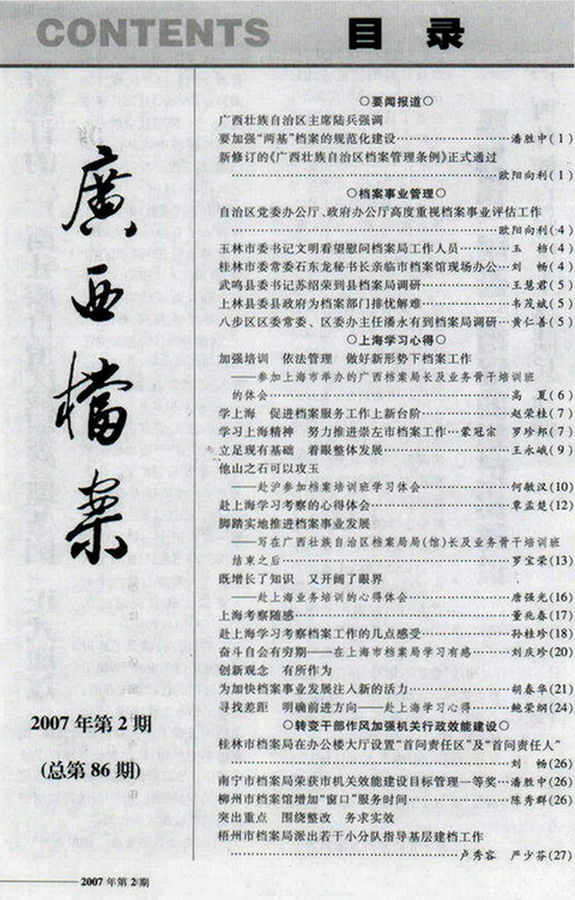 CONTENTS 目录
廣西檔案
2007年第2期
(总第86期)
○要闻报道○
广西壮族自治区主席陆兵强调
要加强“两基”档案的规范化建设……潘胜中(1)
新修订的《广西壮族自治区档案管理条例》正式通过
……欧阳向利(1)
○档案事业管理○
自治区党委办公厅、政府办公厅高度重视档案事业评估工作
……欧阳向利(4)
玉林市委书记文明看望慰问档案局工作人员……王 档(4)
桂林市委常委石东龙秘书长亲临市档案馆现场办公…刘 畅(4)
武鸣县委书记苏绍荣到县档案局调研……王慧君(5)
上林县委县政府为档案部门排忧解难……韦茂斌(5)
八步区区委常委、区委办主任潘永有到档案局调研…黄仁善(5)
○上海学习心得○
加强培训 依法管理 做好新形势下档案工作
——参加上海市举办的广西档案局长及业务骨干培训班
的体会……高 夏(6)
学上海 促进档案服务工作上新台阶……赵荣桂(7)
学习上海精神 努力推进崇左市档案工作…蒙冠宗 罗珍邦(7)
立足现有基础 着眼整体发展……王永峨(9)
他山之石可以攻玉
——赴沪参加档案培训班学习体会……何敏汉(10)
赴上海学习考察的心得体会……覃孟楚(12)
脚踏实地推进档案事业发展
——写在广西壮族自治区档案局局(馆)长及业务骨干培训班
结束之后……罗宝荣(13)
既增长了知识 又开阔了眼界
——赴上海业务培训的心得体会……唐强光(16)
上海考察随感……董兆春(17)
赴上海学习考察档案工作的几点感受……孙桂珍(18)
奋斗自会有穷期——在上海市档案局学习有感……刘庆珍(20)
创新观念 有所作为
为加快档案事业发展注入新的活力……胡春华(21)
寻找差距 明确前进方向——赴上海学习心得……鲍荣炳(24)
○转变干部作风加强机关行政效能建设○
桂林市档案局在办公楼大厅设置“首问责任区”及“首问责任人”
……刘 畅(26)
南宁市档案局荣获市机关效能建设目标管理一等奖…潘胜中(26)
柳州市档案馆增加“窗口”服务时间……陈秀群(26)
突出重点 围绕整改 务求实效
梧州市档案局派出若干小分队指导基层建档工作
……卢秀容 严少芬(27)
2007年第2期